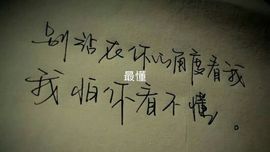 别站在你的角度看我
最懂
我怕你看不懂。